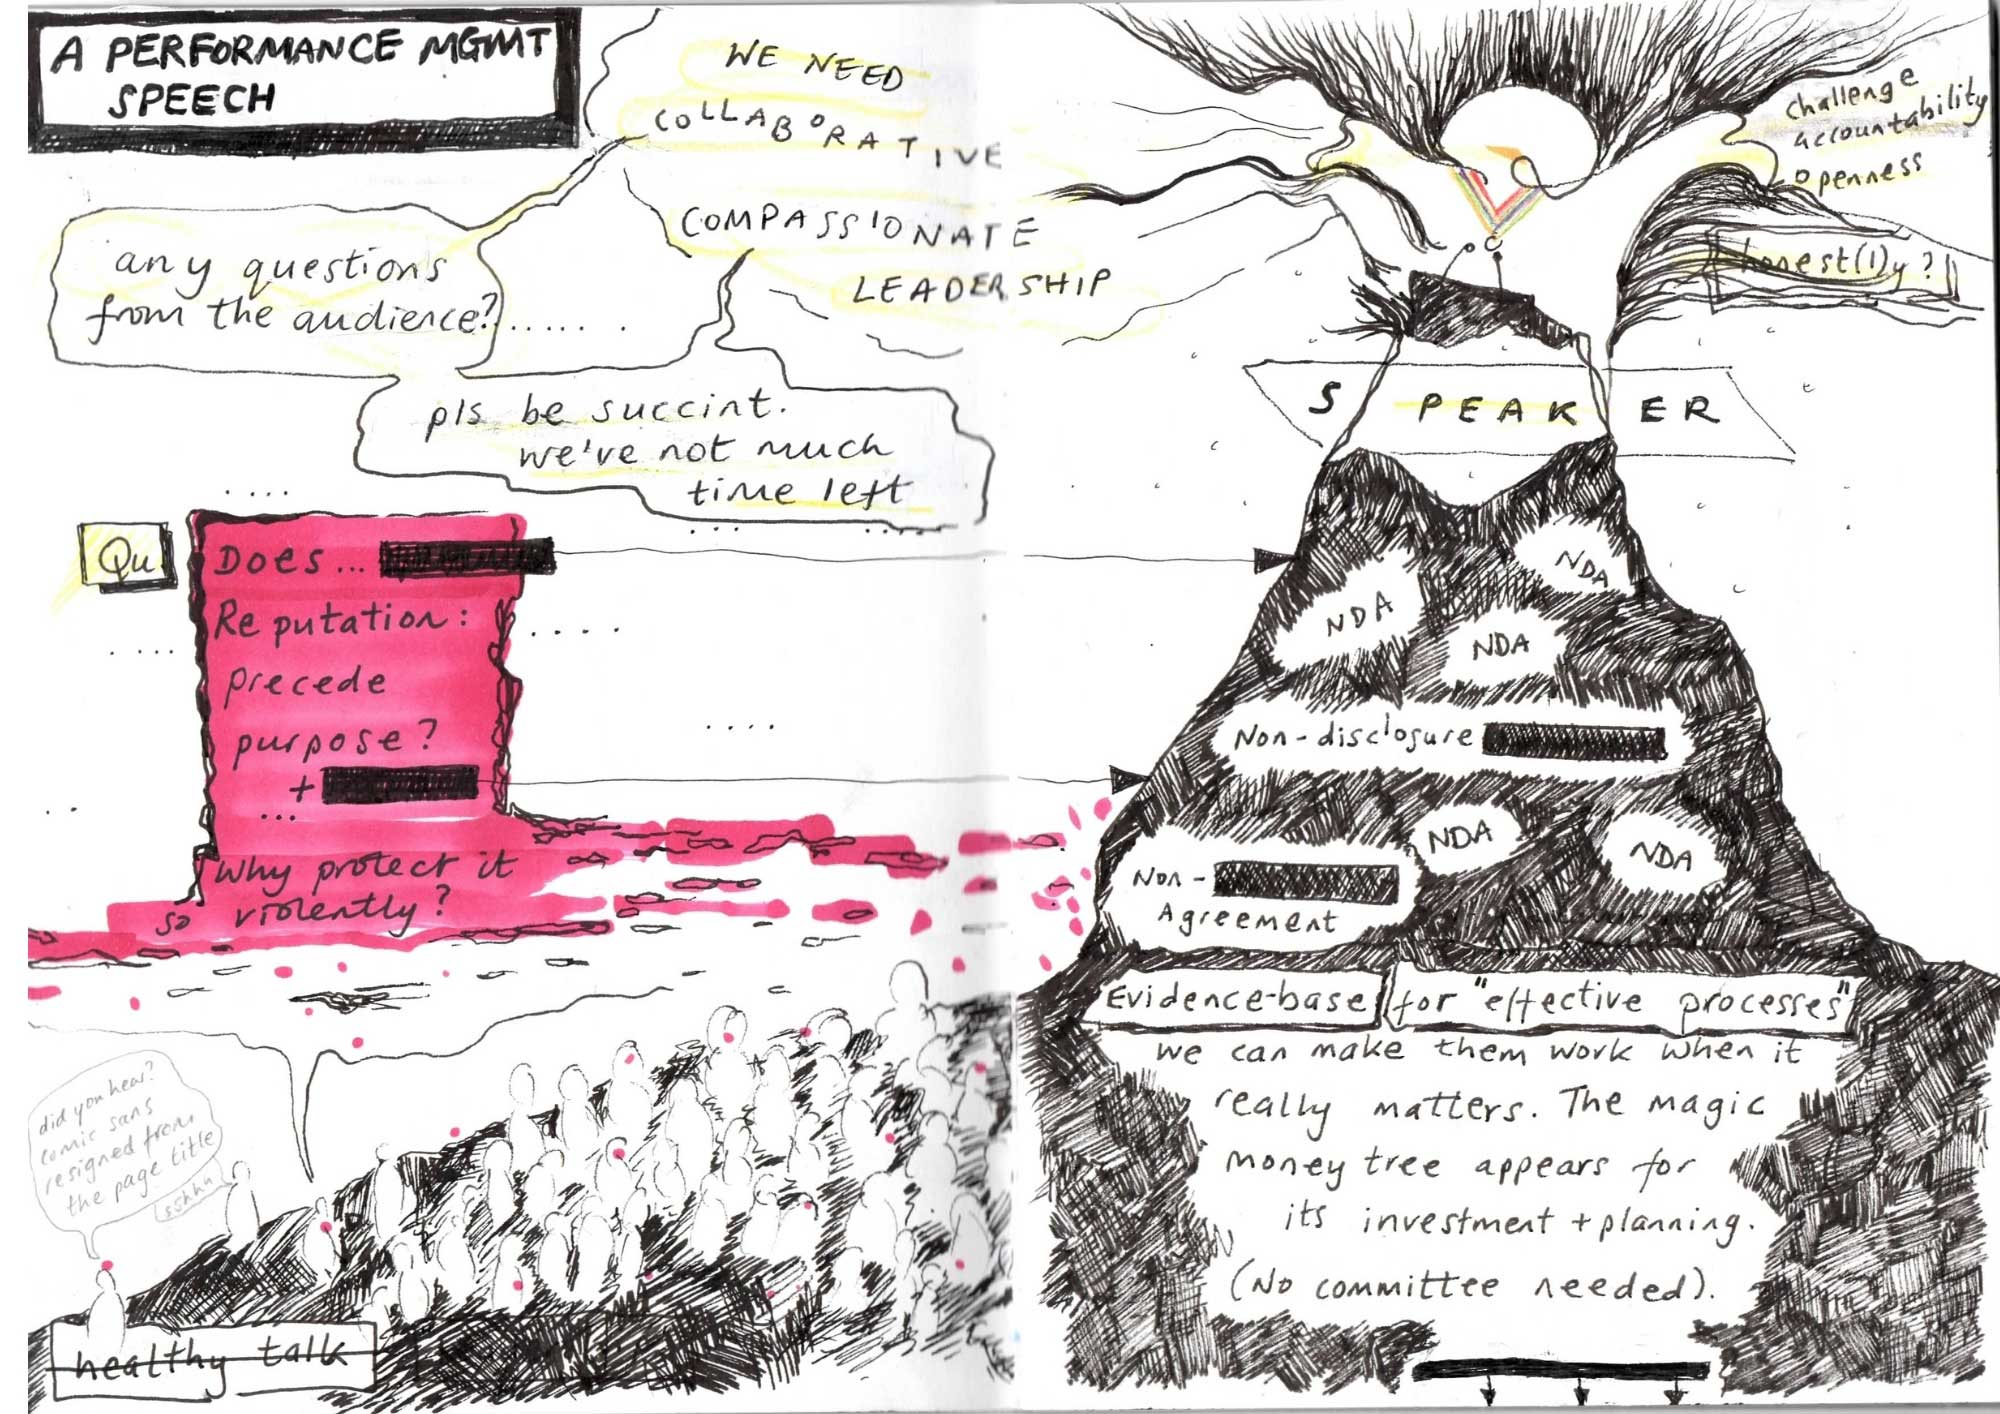 A PERFORMANCE MGMT
SPEECH
WE NEED
COLLABORATIVE
COMPASSIONATE
LEADERSHIP
any questions
from the audience?......
pls be succint.
we've not much
time left
....
Qu
Does...
Reputation:
precede
purpose?
+
...
Why protect it
so violently?
did you hear?
comic sans
resigned from
the page title
sshhh
healthy talk
challenge
accountability
openness
honest(l)y?
SPEAKER
NDA
NDA
NDA
Non-disclosure
NDA
NDA
Non-
Agreement
Evidence-base for "effective processes"
we can make them work when it
really matters. The magic
money tree appears for
its investment + planning.
(No committee needed).